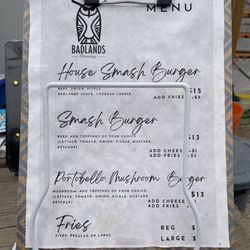 MENU
BADLANDS
Brewing
House Smash Burger
BEEF, ONION, PICKLE $15
BADLANDS SAUCE, CHEDDAR CHEESE
ADD FRIES +$1
Smash Burger
BEEF, ADD TOPPINGS OF YOUR CHOICE $13
(LETTUCE, TOMATO, ONION, PICKLE, MUSTARD,
KETCHUP)
ADD CHEESE $1
ADD FRIES
Portobello Mushroom Burger
MUSHROOM, ADD TOPPINGS OF YOUR CHOICE $13
(LETTUCE, TOMATO, ONION, PICKLE, MUSTARD,
KETCHUP)
ADD CHEESE
ADD FRIES
Fries
SIZES: REGULAR OR LARGE
REG $
LARGE $